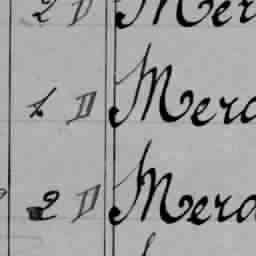 2 D Mer
1 D Merc
2 D Merc